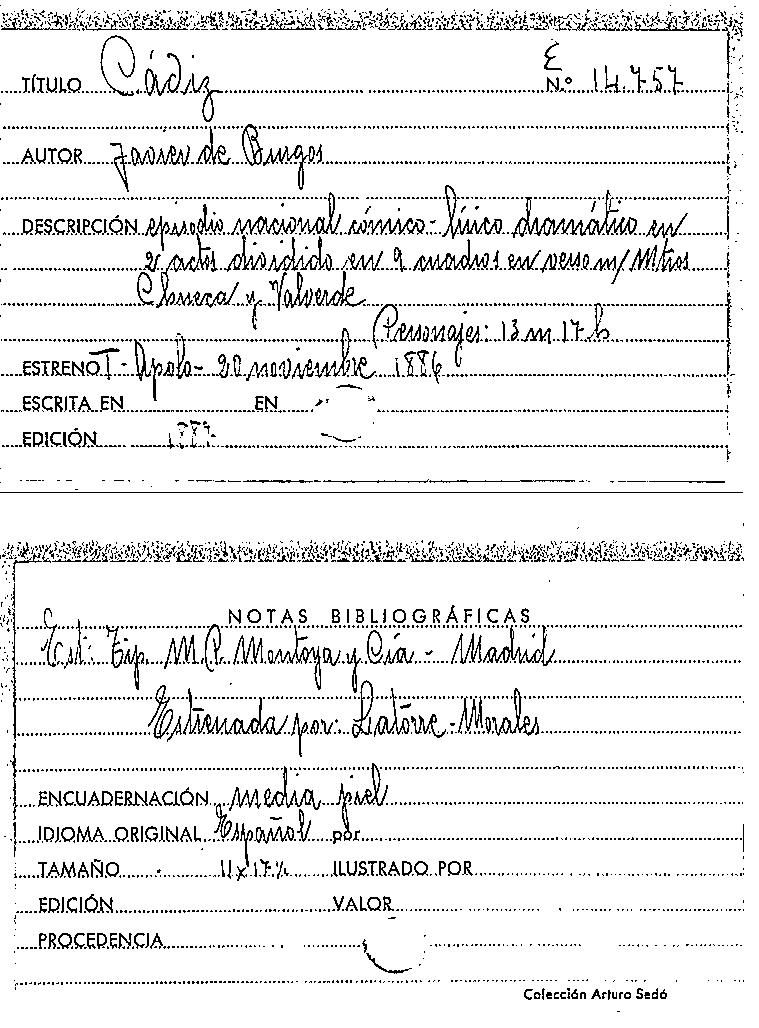 TÍTULO Cádiz E
N.º 14.757
AUTOR Javier de Burgos
DESCRIPCIÓN episodio nacional cómico-lírico dramático en
2 actos dividido en 9 cuadros en verso m/ Mtros
Chueca y Valverde
(Personajes: 13 m 17 h
ESTRENO T- Apolo- 20 noviembre 1886
ESCRITA EN EN
EDICIÓN 1887
NOTAS BIBLIOGRÁFICAS
Est: Tip. M.P. Montoya y Cía - Madrid
Estrenada por: Latorre-Morales
ENCUADERNACIÓN media piel
IDIOMA ORIGINAL Español por
TAMAÑO 11x17½ ILUSTRADO POR
EDICIÓN VALOR
PROCEDENCIA
Colección Arturo Sedó